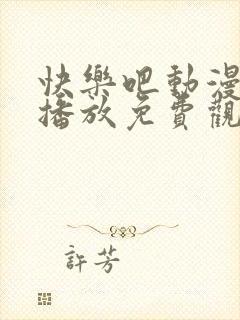 快樂吧動漫
播放免費觀
許芳